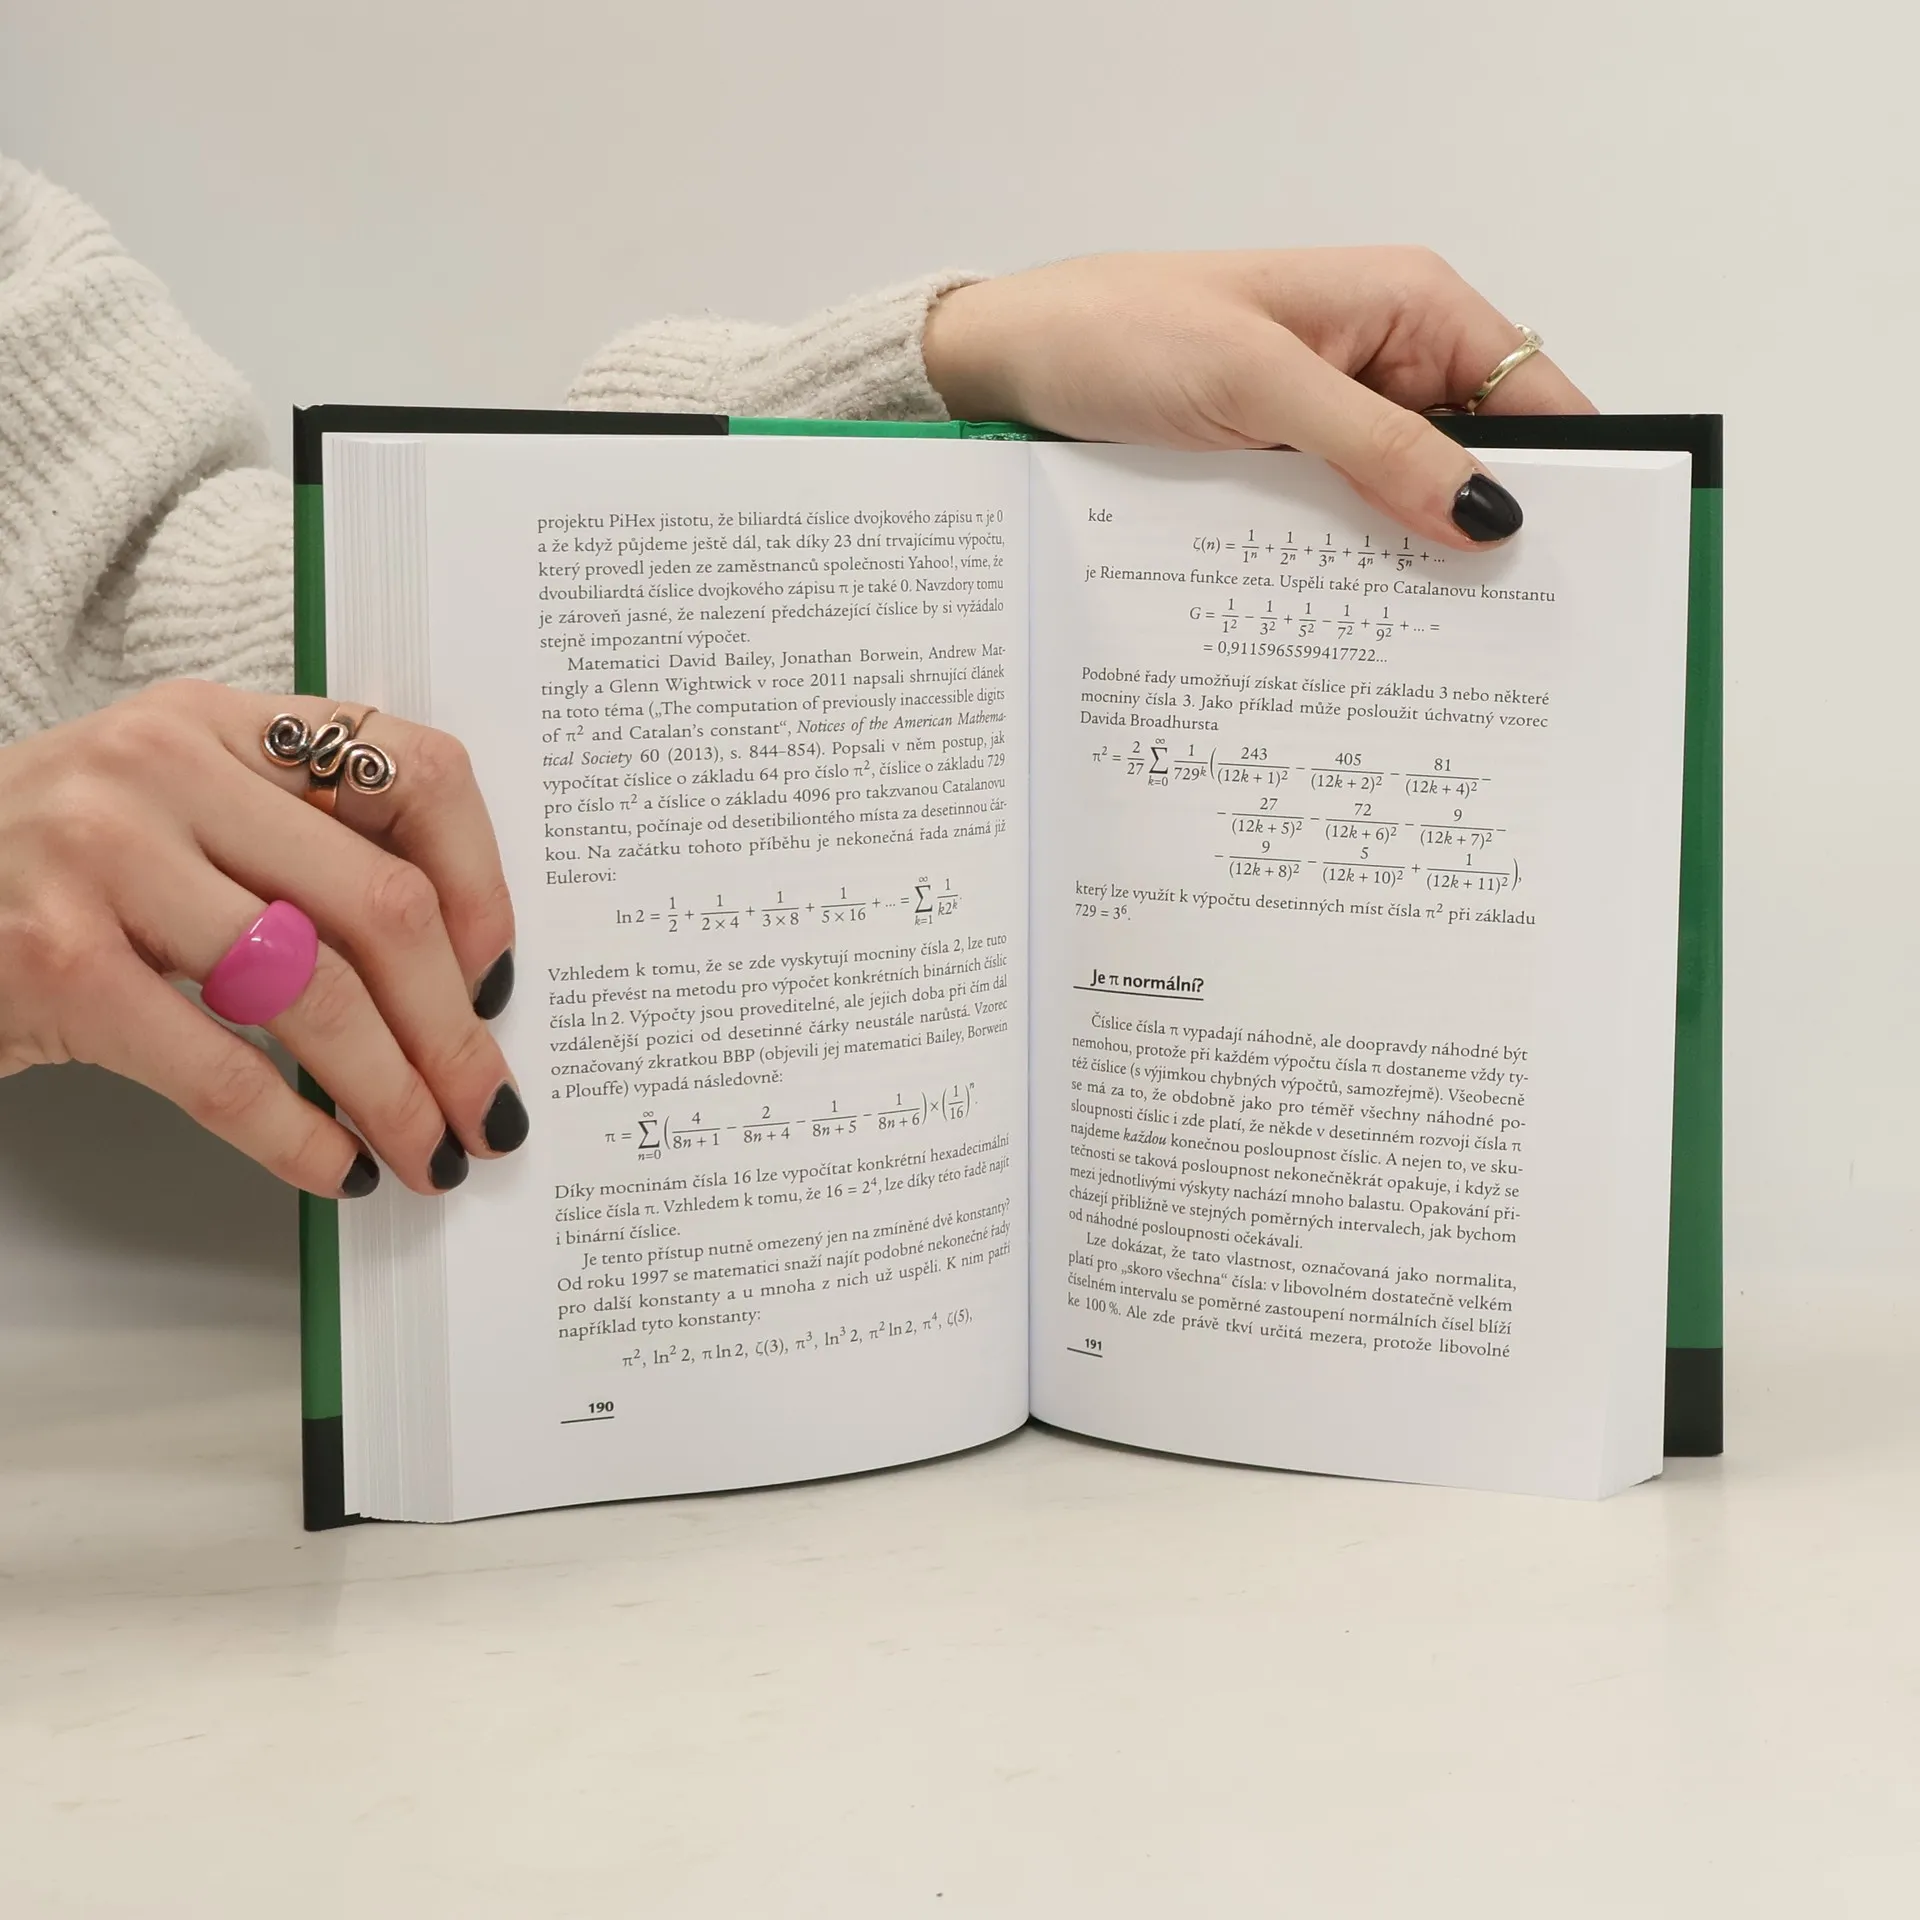 projektu PiHex jistotu, že biliardtá číslice dvojkového zápisu π je 0
a že když půjdeme ještě dál, tak díky 23 dní trvajícímu výpočtu,
který provedl jeden ze zaměstnanců společnosti Yahoo!, víme, že
dvoubiliardtá číslice dvojkového zápisu π je také 0. Navzdory tomu
je zároveň jasné, že nalezení předcházející číslice by si vyžádalo
stejně impozantní výpočet.
Matematici David Bailey, Jonathan Borwein, Andrew Mat-
tingly a Glenn Wightwick v roce 2011 napsali shrnující článek
na toto téma („The computation of previously inaccessible digits
of π² and Catalan’s constant“, Notices of the American Mathema-
tical Society 60 (2013), s. 844–854). Popsali v něm postup, jak
vypočítat číslice o základu 64 pro číslo π², číslice o základu 729
pro číslo π² a číslice o základu 4096 pro takzvanou Catalanovu
konstantu, počínaje od desetibiliontého místa za desetinnou čár-
kou. Na začátku tohoto příběhu je nekonečná řada známá již
Eulerovi:
ln 2 = 1/2 + 1/(2 × 4) + 1/(3 × 8) + 1/(5 × 16) + ... = ∑_{k=1}^{∞} 1/(k2^k).
Vzhledem k tomu, že se zde vyskytují mocniny čísla 2, lze tuto
řadu převést na metodu pro výpočet konkrétních binárních číslic
čísla ln 2. Výpočty jsou proveditelné, ale jejich doba při čím dál
vzdálenější pozici od desetinné čárky neustále narůstá. Vzorec
označovaný zkratkou BBP (objevili jej matematici Bailey, Borwein
a Plouffe) vypadá následovně:
π = ∑_{n=0}^{∞} (4/(8n + 1) − 2/(8n + 4) − 1/(8n + 5) − 1/(8n + 6)) × (1/16)^n.
Díky mocninám čísla 16 lze vypočítat konkrétní hexadecimální
číslice čísla π. Vzhledem k tomu, že 16 = 2⁴, lze díky této řadě najít
i binární číslice.
Je tento přístup nutně omezený jen na zmíněné dvě konstanty?
Od roku 1997 se matematici snaží najít podobné nekonečné řady
pro další konstanty a u mnoha z nich už uspěli. K nim patří
například tyto konstanty:
π², ln² 2, π ln 2, ζ(3), π³, ln³ 2, π² ln 2, π⁴, ζ(5),
190
kde
ζ(n) = 1/1^n + 1/2^n + 1/3^n + 1/4^n + 1/5^n + ...
je Riemannova funkce zeta. Uspěli také pro Catalanovu konstantu
G = 1/1² − 1/3² + 1/5² − 1/7² + 1/9² + ... =
= 0,9115965599417722...
Podobné řady umožňují získat číslice při základu 3 nebo některé
mocniny čísla 3. Jako příklad může posloužit úchvatný vzorec
Davida Broadhursta
π² = 2/27 ∑_{k=0}^{∞} 1/729^k (243/(12k + 1)² − 405/(12k + 2)² − 81/(12k + 4)² −
− 27/(12k + 5)² − 72/(12k + 6)² − 9/(12k + 7)² −
− 9/(12k + 8)² − 5/(12k + 10)² + 1/(12k + 11)²),
který lze využít k výpočtu desetinných míst čísla π² při základu
729 = 3⁶.
Je π normální?
Číslice čísla π vypadají náhodně, ale doopravdy náhodné být
nemohou, protože při každém výpočtu čísla π dostaneme vždy ty-
též číslice (s výjimkou chybných výpočtů, samozřejmě). Všeobecně
se má za to, že obdobně jako pro téměř všechny náhodné po-
sloupnosti číslic i zde platí, že někde v desetinném rozvoji čísla π
najdeme každou konečnou posloupnost číslic. A nejen to, ve sku-
tečnosti se taková posloupnost nekonečněkrát opakuje, i když se
mezi jednotlivými výskyty nachází mnoho balastu. Opakování při-
cházejí přibližně ve stejných poměrných intervalech, jak bychom
od náhodné posloupnosti očekávali.
Lze dokázat, že tato vlastnost, označovaná jako normalita,
platí pro „skoro všechna“ čísla: v libovolném dostatečně velkém
číselném intervalu se poměrné zastoupení normálních čísel blíží
ke 100 %. Ale zde právě tkví určitá mezera, protože libovolné
191